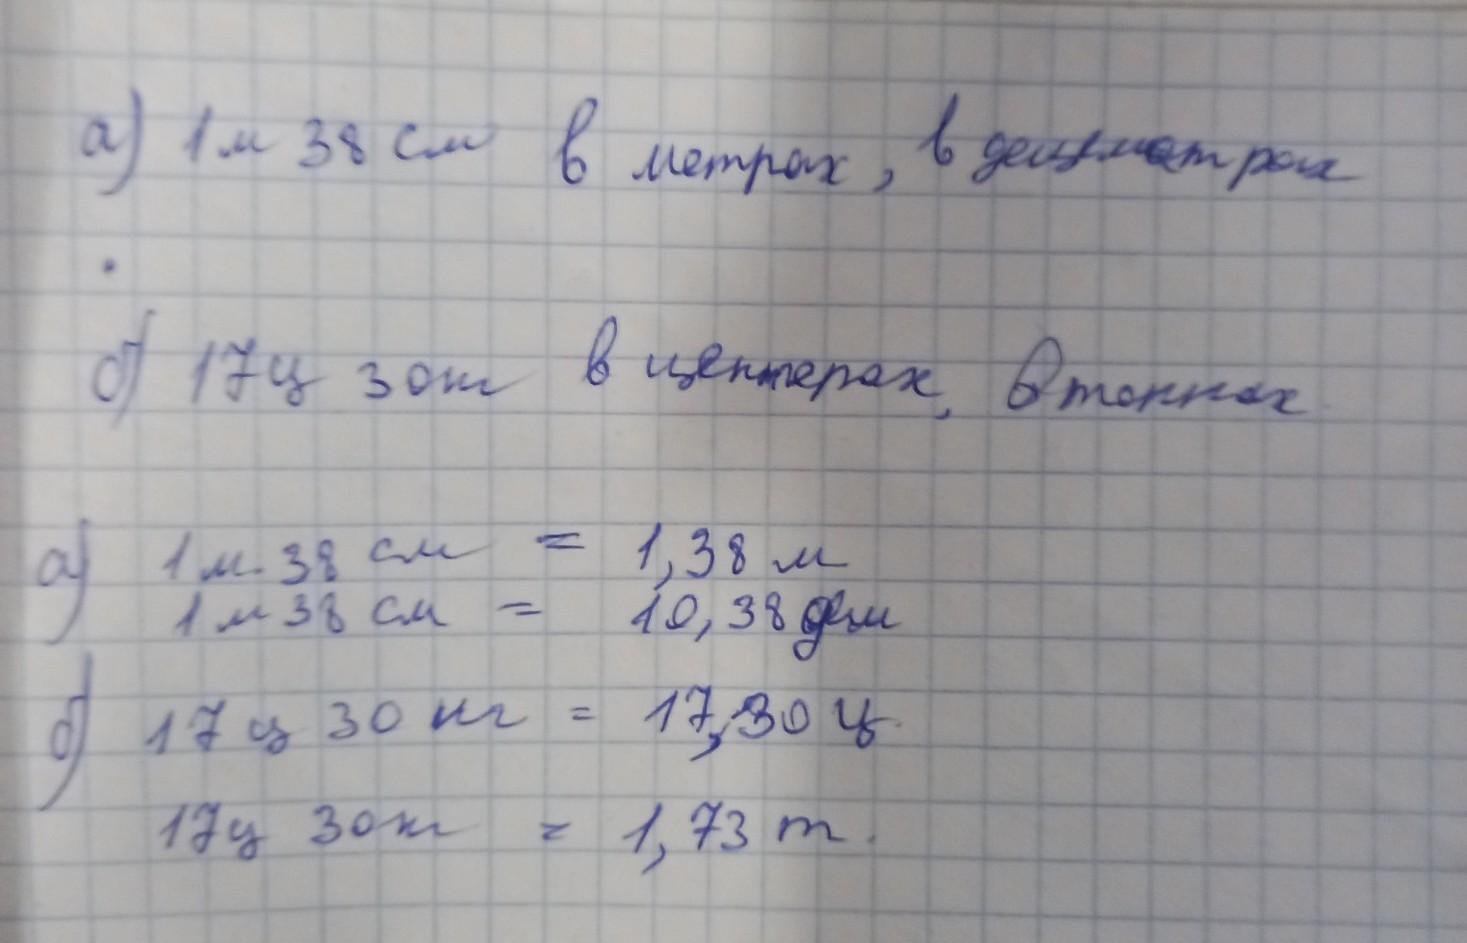 а) 1 м 38 см в метрах, в дециметрах
б) 17ц 30кг в центерах, в тоннах
а) 1 м 38 см = 1,38 м
1 м 38 см = 10,38 дм
б) 17 ц 30 кг = 17,30 ц
17ц 30кг = 1,73 т.